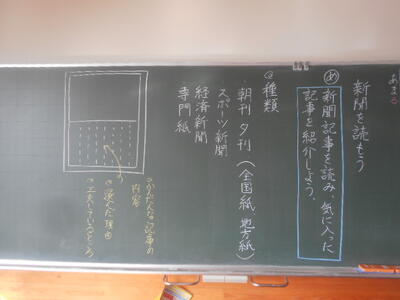 新聞を読もう
め
新聞記事を読み、気に入った
記事を紹介しよう。
◎種類
朝刊 夕刊 (全国紙、地方紙)
スポーツ新聞
経済新聞
専門紙
内容
○選んだ理由
○工夫しているところ